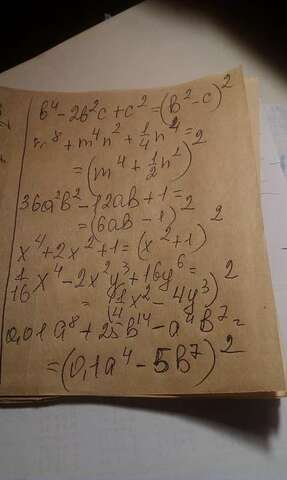 b⁴ - 2b²c + c² = (b² - c)²
m⁸ + m⁴n² + 1/4 n⁴ =
= (m⁴ + 1/2 n²)²
36a²b² - 12ab + 1 =
= (6ab - 1)²
x⁴ + 2x² + 1 = (x² + 1)²
1/16 x⁴ - 2x²y³ + 16y⁶ =
= (1/4 x² - 4y³)²
0,01a⁸ + 25b¹⁴ - a⁴b⁷ =
= (0,1a⁴ - 5b⁷)²